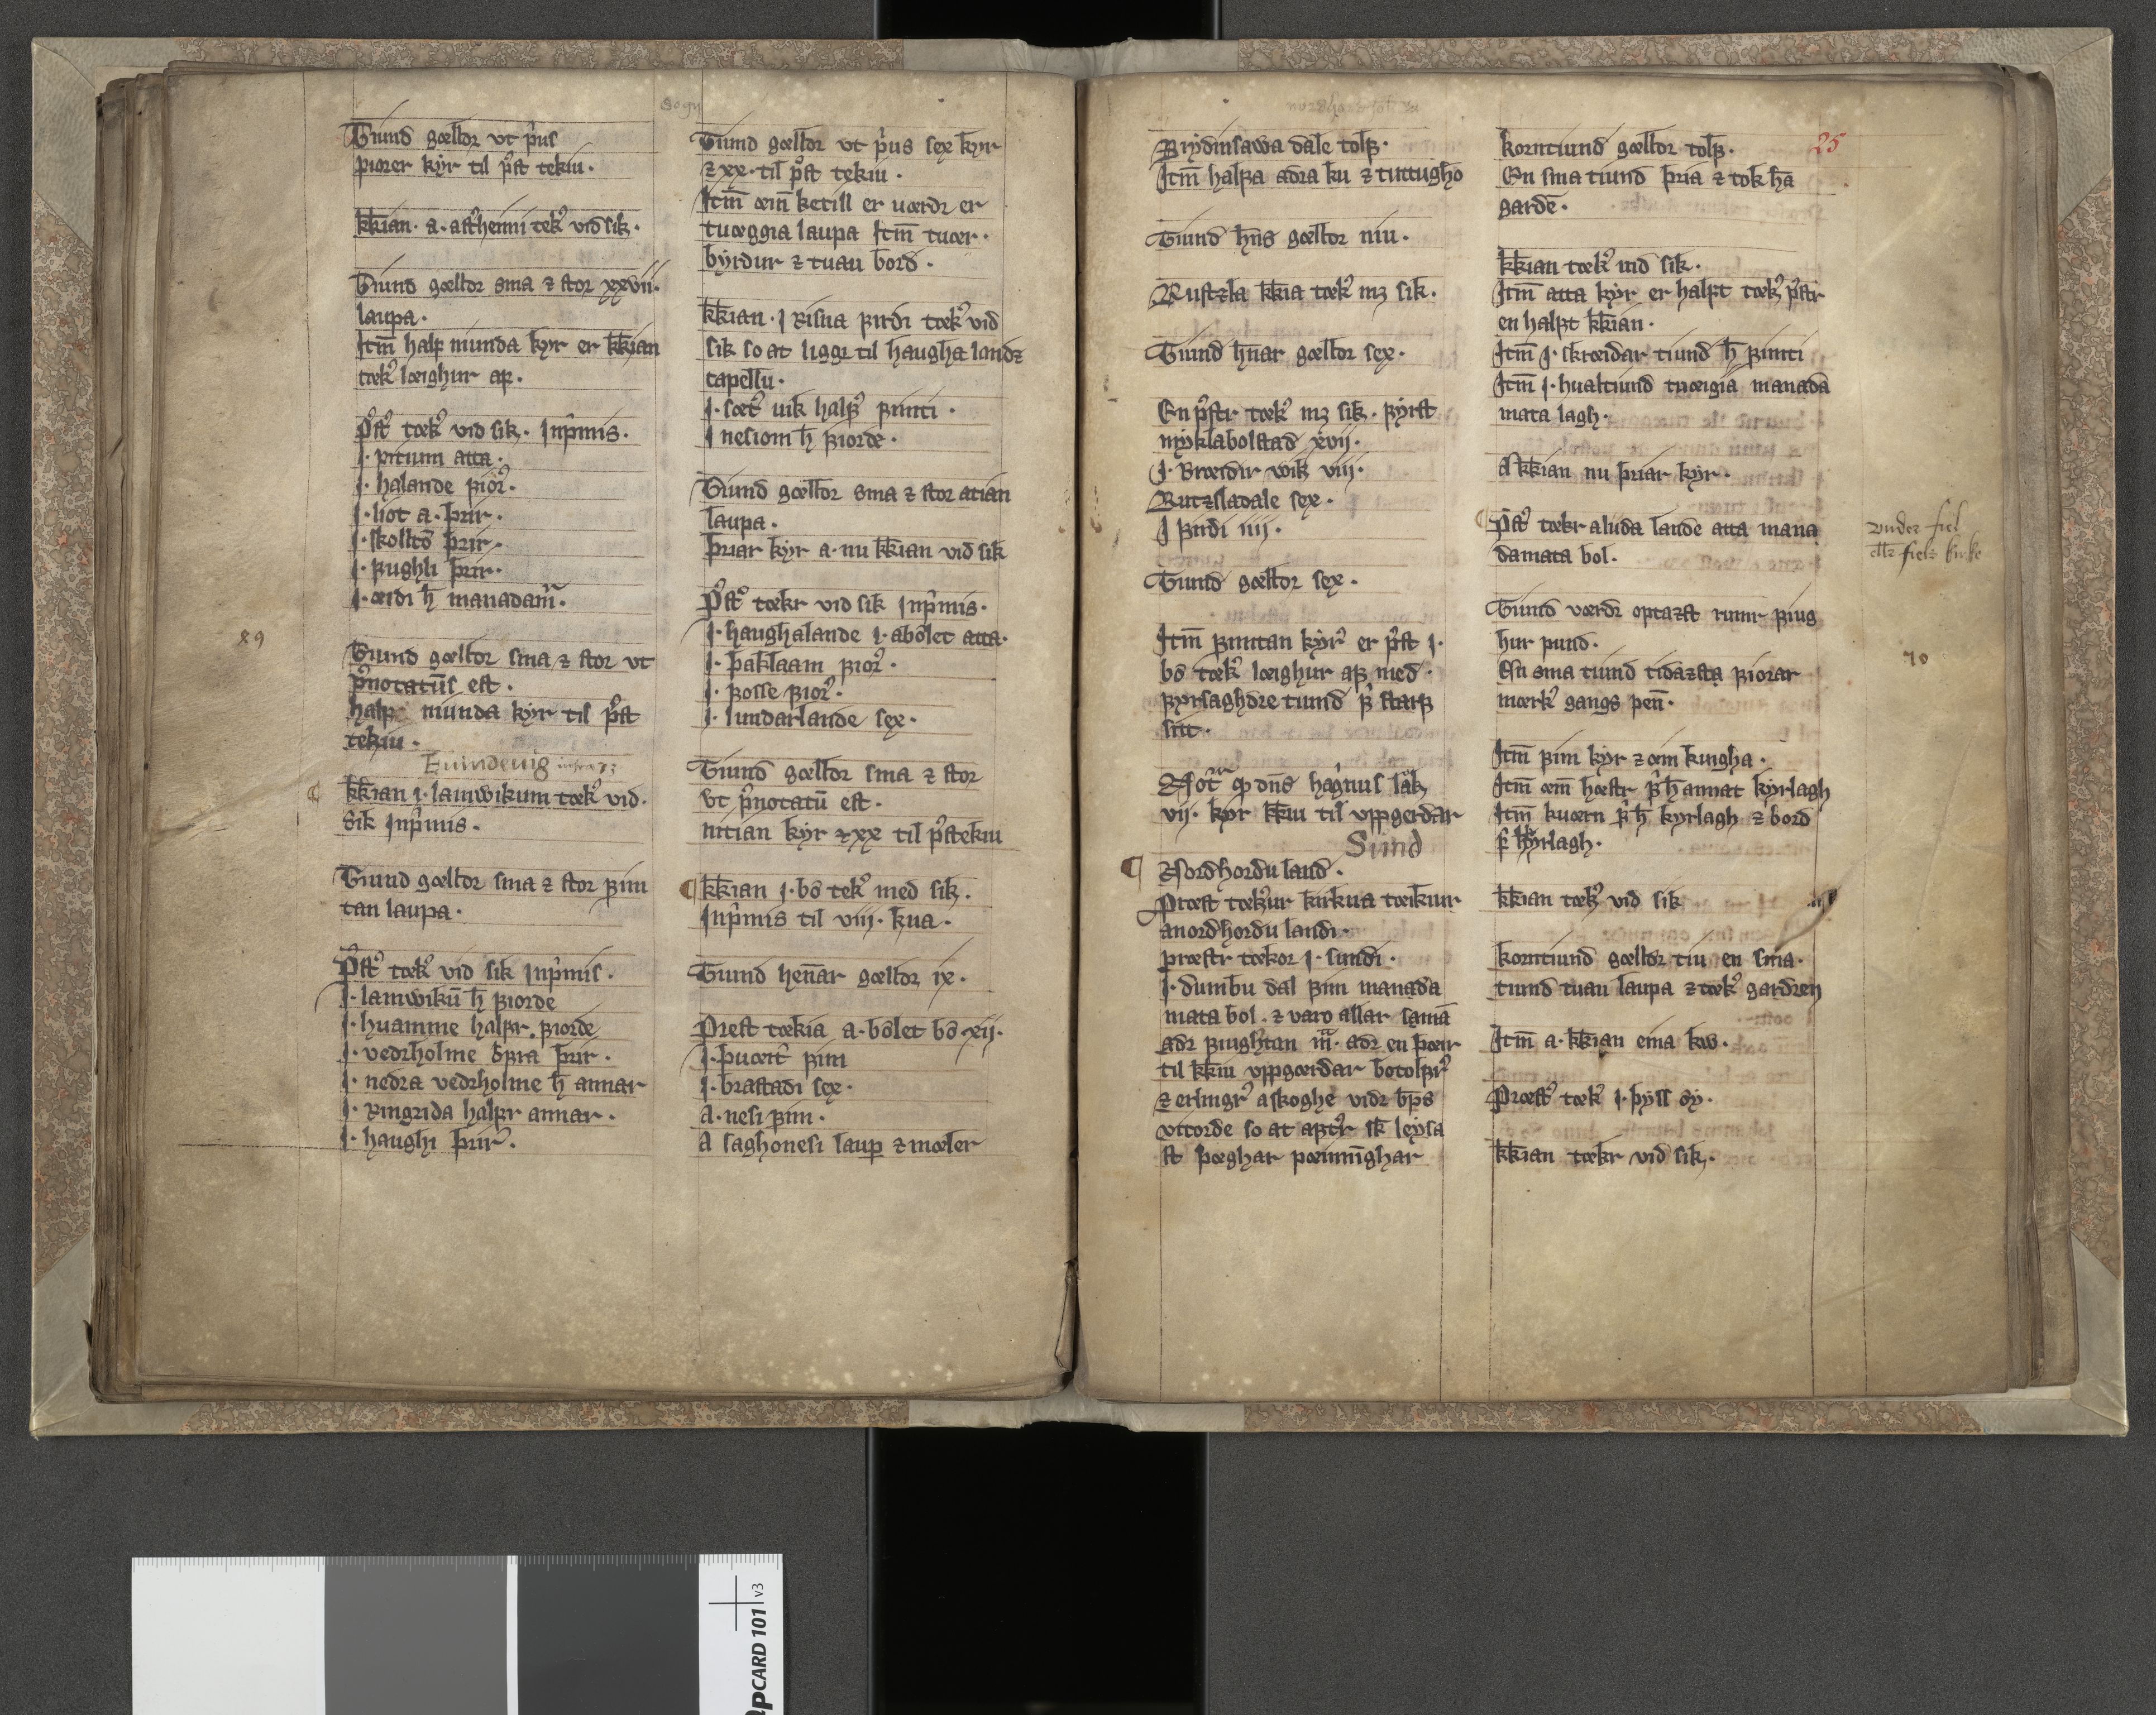 Sogn
Tiund gælldr vt p͛us
fiorer kyr til p͛st tekiu.
kk̅ian. a. ast͛heimi tek͛ vid sik.
Tiund gælldr sma ⁊ stor xxvii.
laupa.
Itm̅ half niunda kyr er kk̅ian
tæk͛ læighur af.
P͛st͛ tæk͛ vid sik. Inp͛mis.
J. fitium atta.
J. halande fior͛.
J. liot a. þrir.
J. skollto̅ þrir.
J. fughli þrir.
J. æidi h̅ manadam̅.
Tiund gælldr sma ⁊ stor vt
p͛notatu̅s est.
half niunda kyr til p͛st
tekiu.
Euindeuig
kk̅ian i. lamwikum tæk͛ vid.
Sik Inp͛mis.
Tiund gælldr sma ⁊ stor fim
tan laupa.
P͛st͛ tæk͛ vid sik Inp͛mis.
J. lamwiku̅ h̅ fiorde
J. huamme halfr. fiorde
J. vedrholme ofra þrir.
J. nedra vedrholme h̅ annar
J. Ringrida halfr annar.
J. haughi þrir͛.
89
Tiund gælldr vt p͛us sex kyr
⁊ xx. til p͛st tekiu.
Itm̅ æin̅ ketill er uærdr er
tuæggia laupa Itm̅ tuær.
byrdur ⁊ tuau bord.
kk̅ian. J Risna firdi tæk͛ vid
sik so at liggr til haugha landz
capellu̅.
J. sæt͛ uik half͛ fimti.
J nesiom h̅ fiorde.
Tiund gælldr sma ⁊ stor atian
laupa.
þriar kyr a. nu kk̅ian vid sik
P͛st͛ tækr vid sik Inp͛mis.
J. haughalande J. abo̅let atta.
J. þaklaam fior͛.
J. fosse fior͛.
J. lundarlande sex.
Tiund gælldr sma ⁊ stor
vt p͛notatu̅ est.
nitian kyr ⁊ xx til p͛stekiu
kk̅ian J. bo̅ tek͛ med sik.
Inp͛mis til viii. kua.
Tiund hen̅ar gælldr ix.
Prest tækia a. bo̅let bo̅ xij.
J. þuæit͛ fim
J. brastadi sex.
A. nesi fim.
A saghonesi laup ⁊ mæler
Brydinsawa dale tolf.
Itm̅ halfa adra ku ⁊ tuttugho
Tiund h̅ns gælldr niu.
Rustzla kk̅ia tæk͛ mz sik.
Tiund h̅nar gælldr sex.
En p͛str tæk͛ mz sik. fyrst
myklabolstad xvij.
J. Bræidir wik viij.
Rutzsladale sex.
J firdi iiij.
Tiund gælldr sex.
Itm̅ fimtan kyr͛ er p͛st J.
bo̅ tæk͛ læighur af med.
fyrsaghdre tiund f͛ starf
sitt.
Not͛ dn̅s hag͛nus
vij. kyr kk̅iu til vppgerdar
Sund
Nordhordu land.
Præst tæk͛ur kirkua tæikiur
anordhordu landi.
præstr tækor J. sundi.
J. dumbu dal fim manada
mata bol. ⁊ varo allar sama̅
adr fiughtan m̅. adr en þæir
til kk̅iu vppgærdar botolfr͛
⁊ erlingr͛ askoghe vidr bp̅s
vttorde so at aft͛r sk̅ leysa
st þæghar pæinni̅ghar
25
korntiund gælldr tolf.
En sma tiund þria ⁊ tok ha̅
garde̅.
kk̅ian tæk͛ uid sik.
Itm̅ atta kyr er halft tæk͛ p͛str
en halft kk̅ian.
Itm̅ J. skræidar tiund h̅ fimti
Itm̅ J. hualtiund tuæigia manada
mata lagh.
A kk̅ian nu þriar kyr.
P͛st͛ tækr aluda lande atta mana
damata bol.
Tiund værdr optazst niun̅ fiug
hur pund.
En sma tiund tidazsta fiorar
mærk͛ gangs pen̅.
Itm̅ fim kyr ⁊ æin kuigha.
Itm̅ æin̅ hæstr f͛ h̅ annat kyrlagh
Itm̅ kuærn f͛ h̅ kyrlagh ⁊ bord
f͛ kyrlagh.
kk̅ian tæk͛ vid sik
korntiund gælldr tiu en sma.
tiund tuau laupa ⁊ tæk͛ gardren
Itm̅ a. kk̅ian eina kw.
Præst͛ tæk͛ J. þyss öy.
kk̅ian tækr vid sik.
vnder fiel
ellr fiels kirke
70